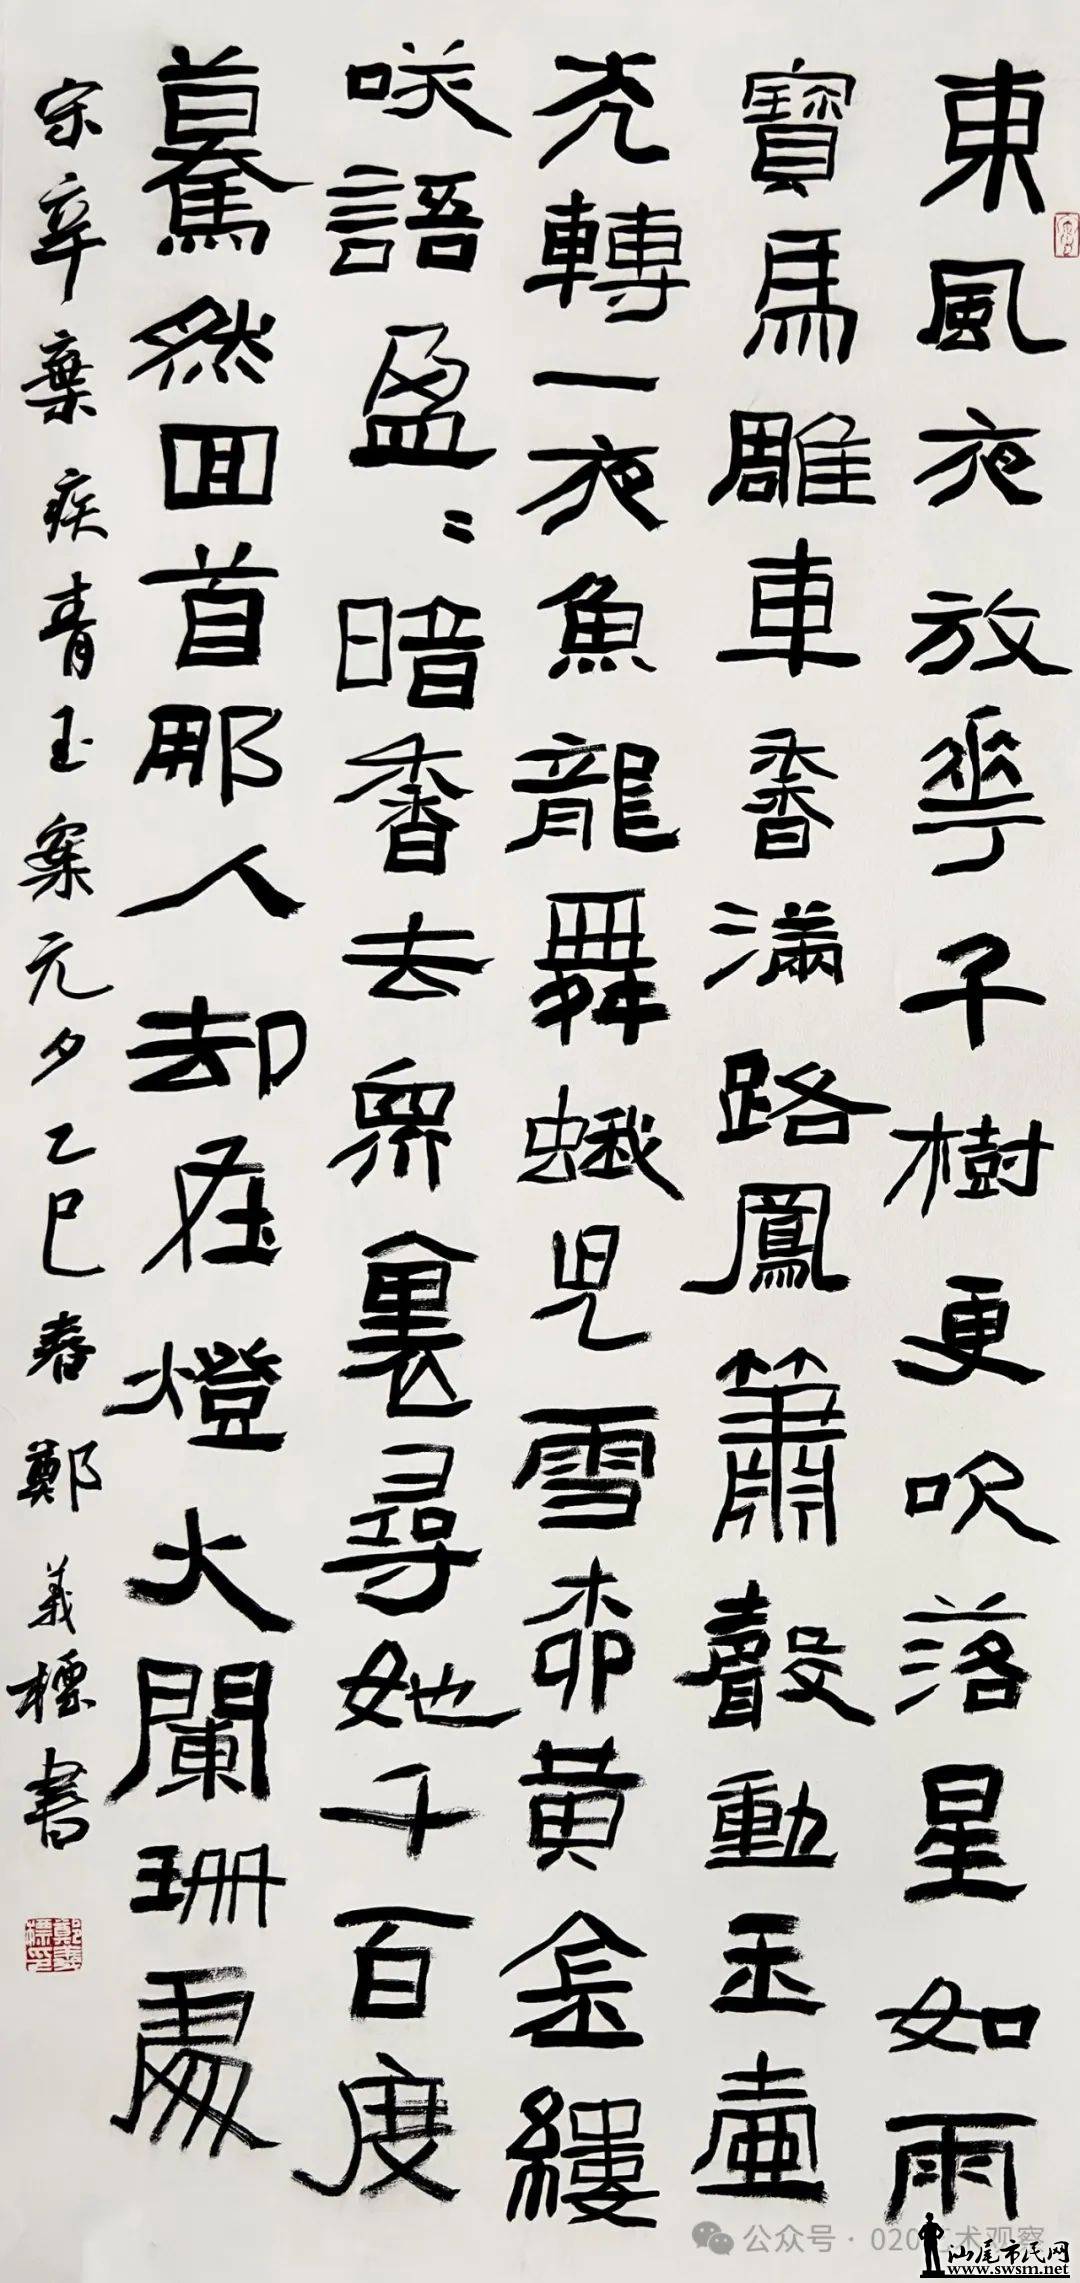 東風夜放華千樹更吹落星如雨
寶馬雕車香滿路鳳簫聲動玉壺
光轉一夜魚龍舞蛾兒雪柳黃金縷
咲語盈〻暗香去衆裏尋她千百度
驀然回首那人却在燈火闌珊處
宋辛棄疾青玉案元夕乙巳春鄭義標書
鄭義標印
公众号 · 020艺术观察
汕尾市民网
www.swsm.net